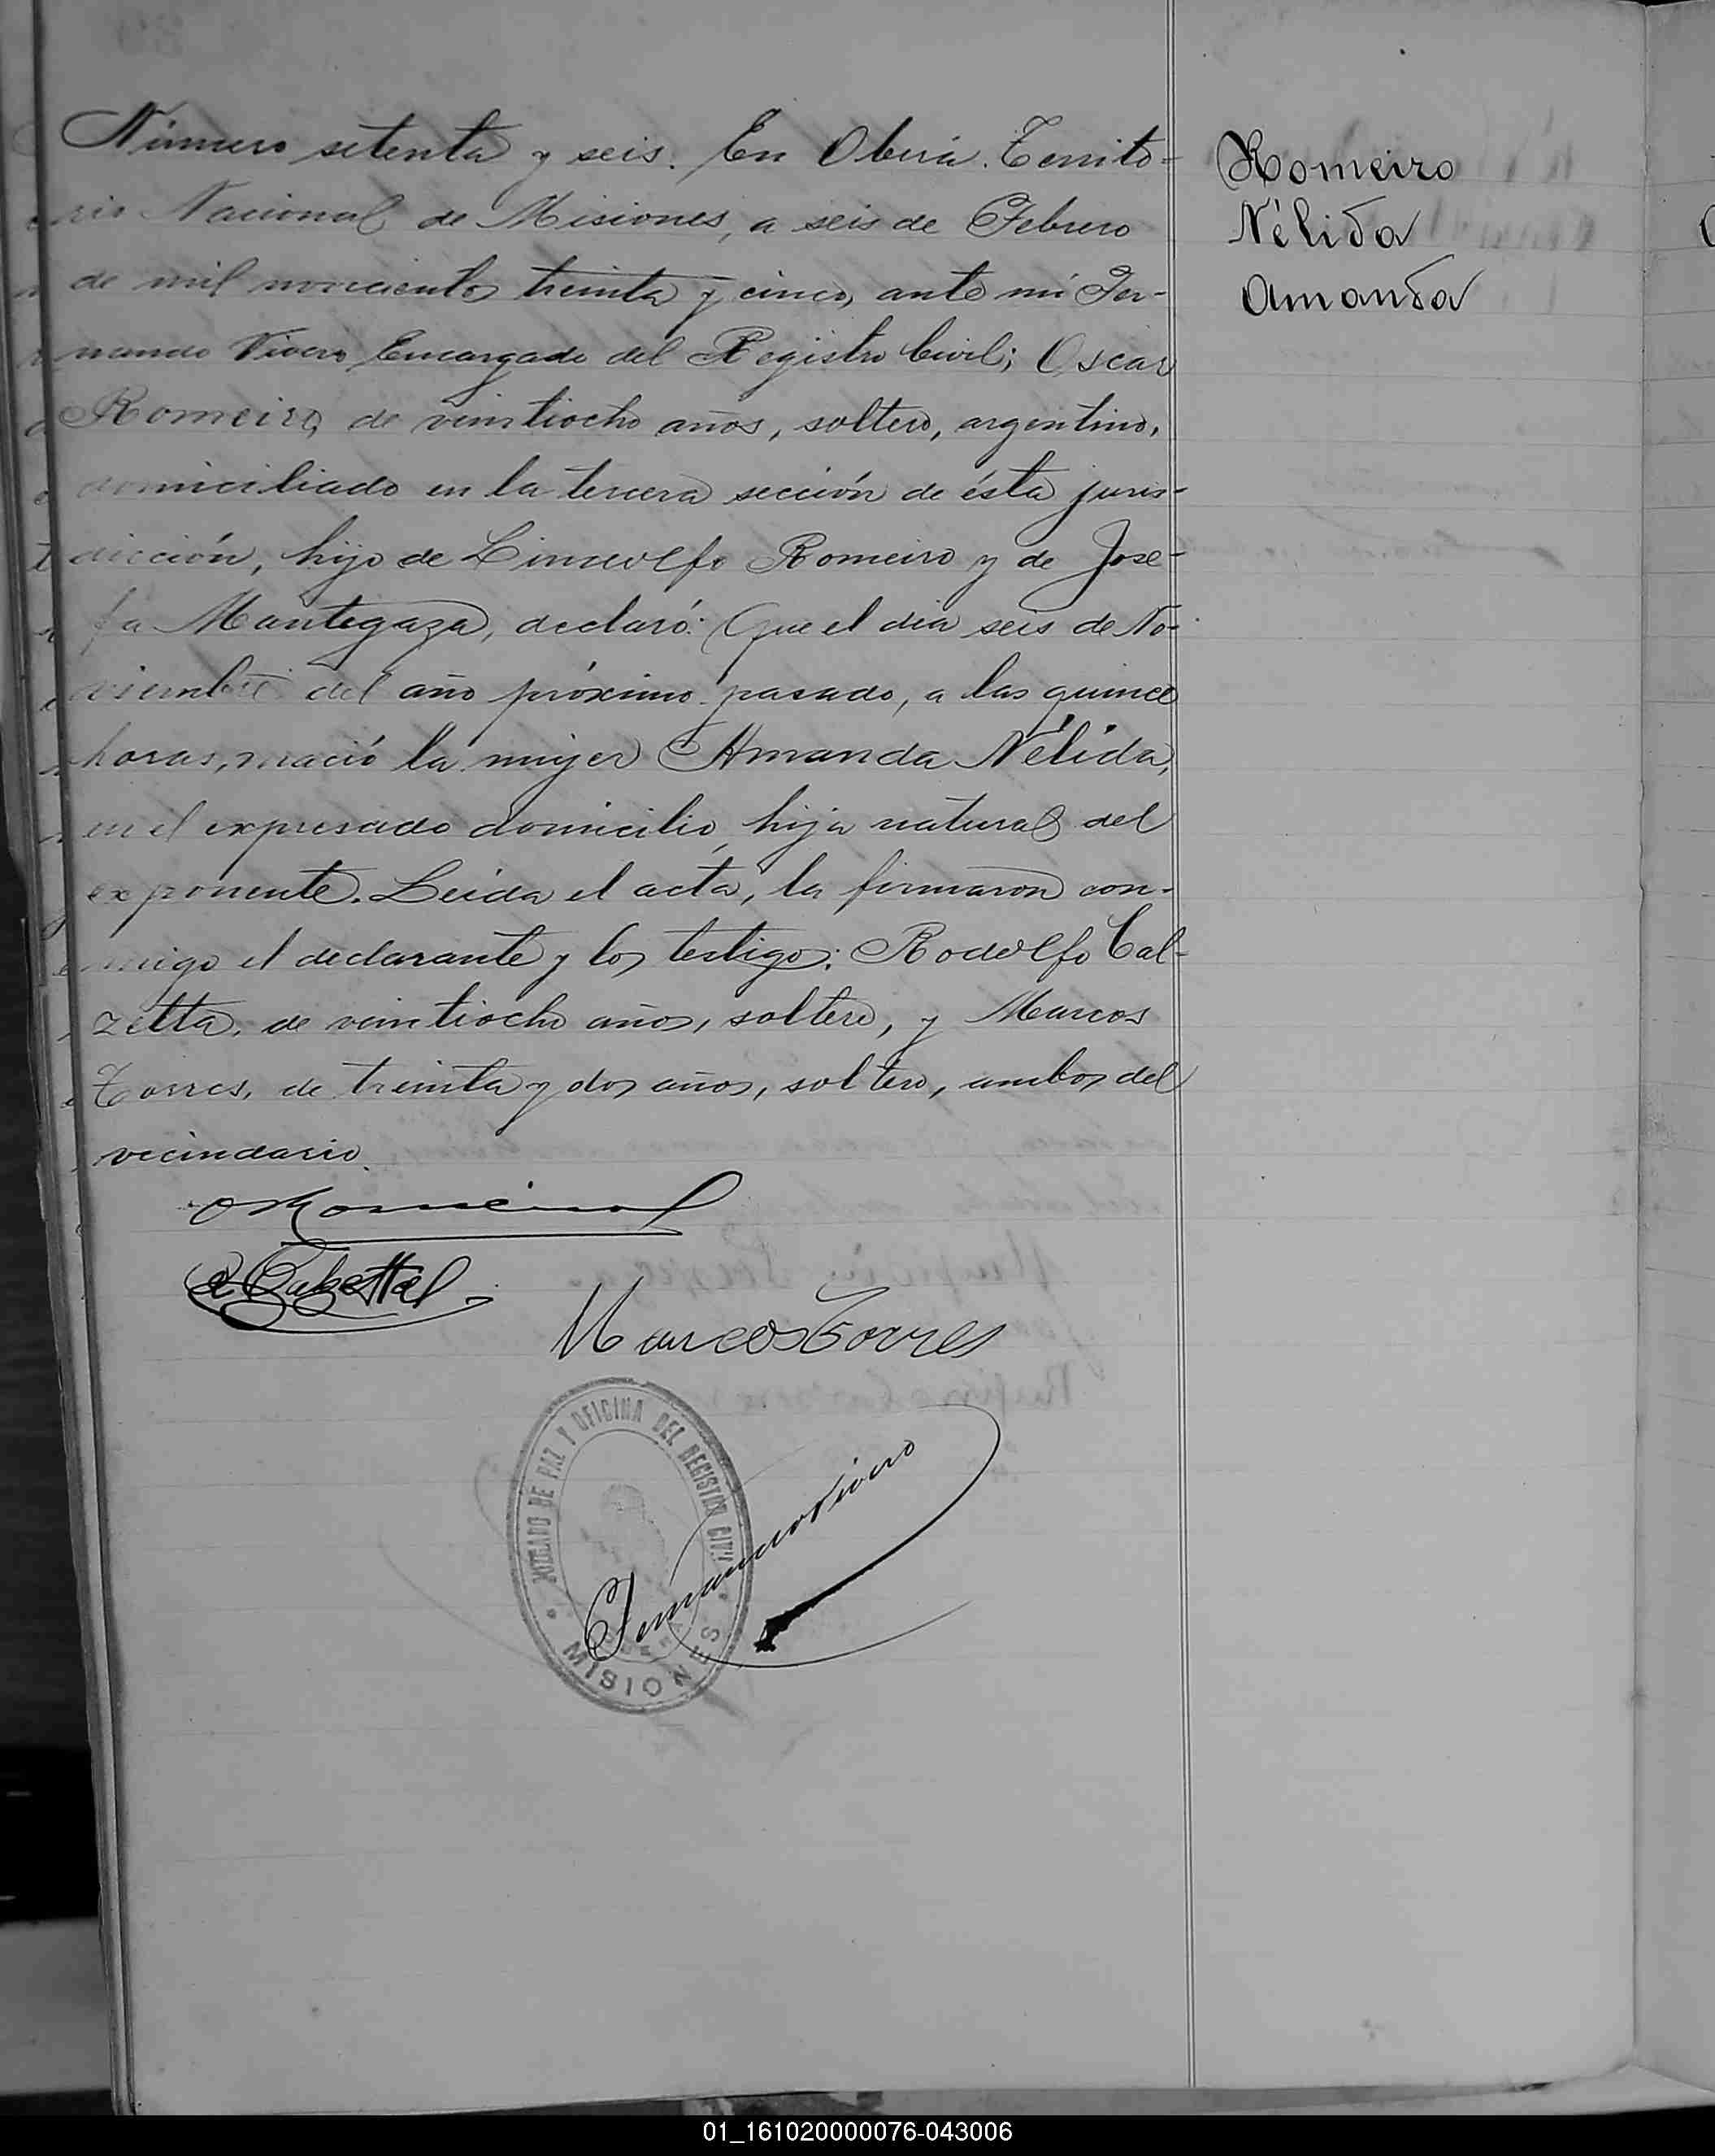 Número setenta y seis. En Oberá. Territo-
rio Nacional de Misiones, a seis de Febrero
de mil novecientos treinta y cinco, ante mí Fer-
nando Vivero Encargado del Registro Civil; Oscar
Romeiro, de veintiocho años, soltero, argentino,
domiciliado en la tercera sección de ésta juris-
dicción, hijo de Romeiro y de Jose-
fa Mantegaza, declaró: Que el día seis de No-
viembre del año próximo pasado, a las quince
horas, nació la mujer Amanda Nélida,
en el expresado domicilio, hija natural del
exponente. Leida el acta, la firmaron con-
migo el declarante y los testigos: Rodolfo Cal-
zetta, de veintiocho años, soltero, y Marcos
Torres, de treinta y dos años, soltero, ambos del
vecindario.
Romeiro
Nélida
Amanda
O Romeiro
R Calzetta
Marcos Torres
JUZGADO DE PAZ Y OFICINA DEL REGISTRO CIVIL
MISIONES
Fernando Vivero
01_161020000076-043006